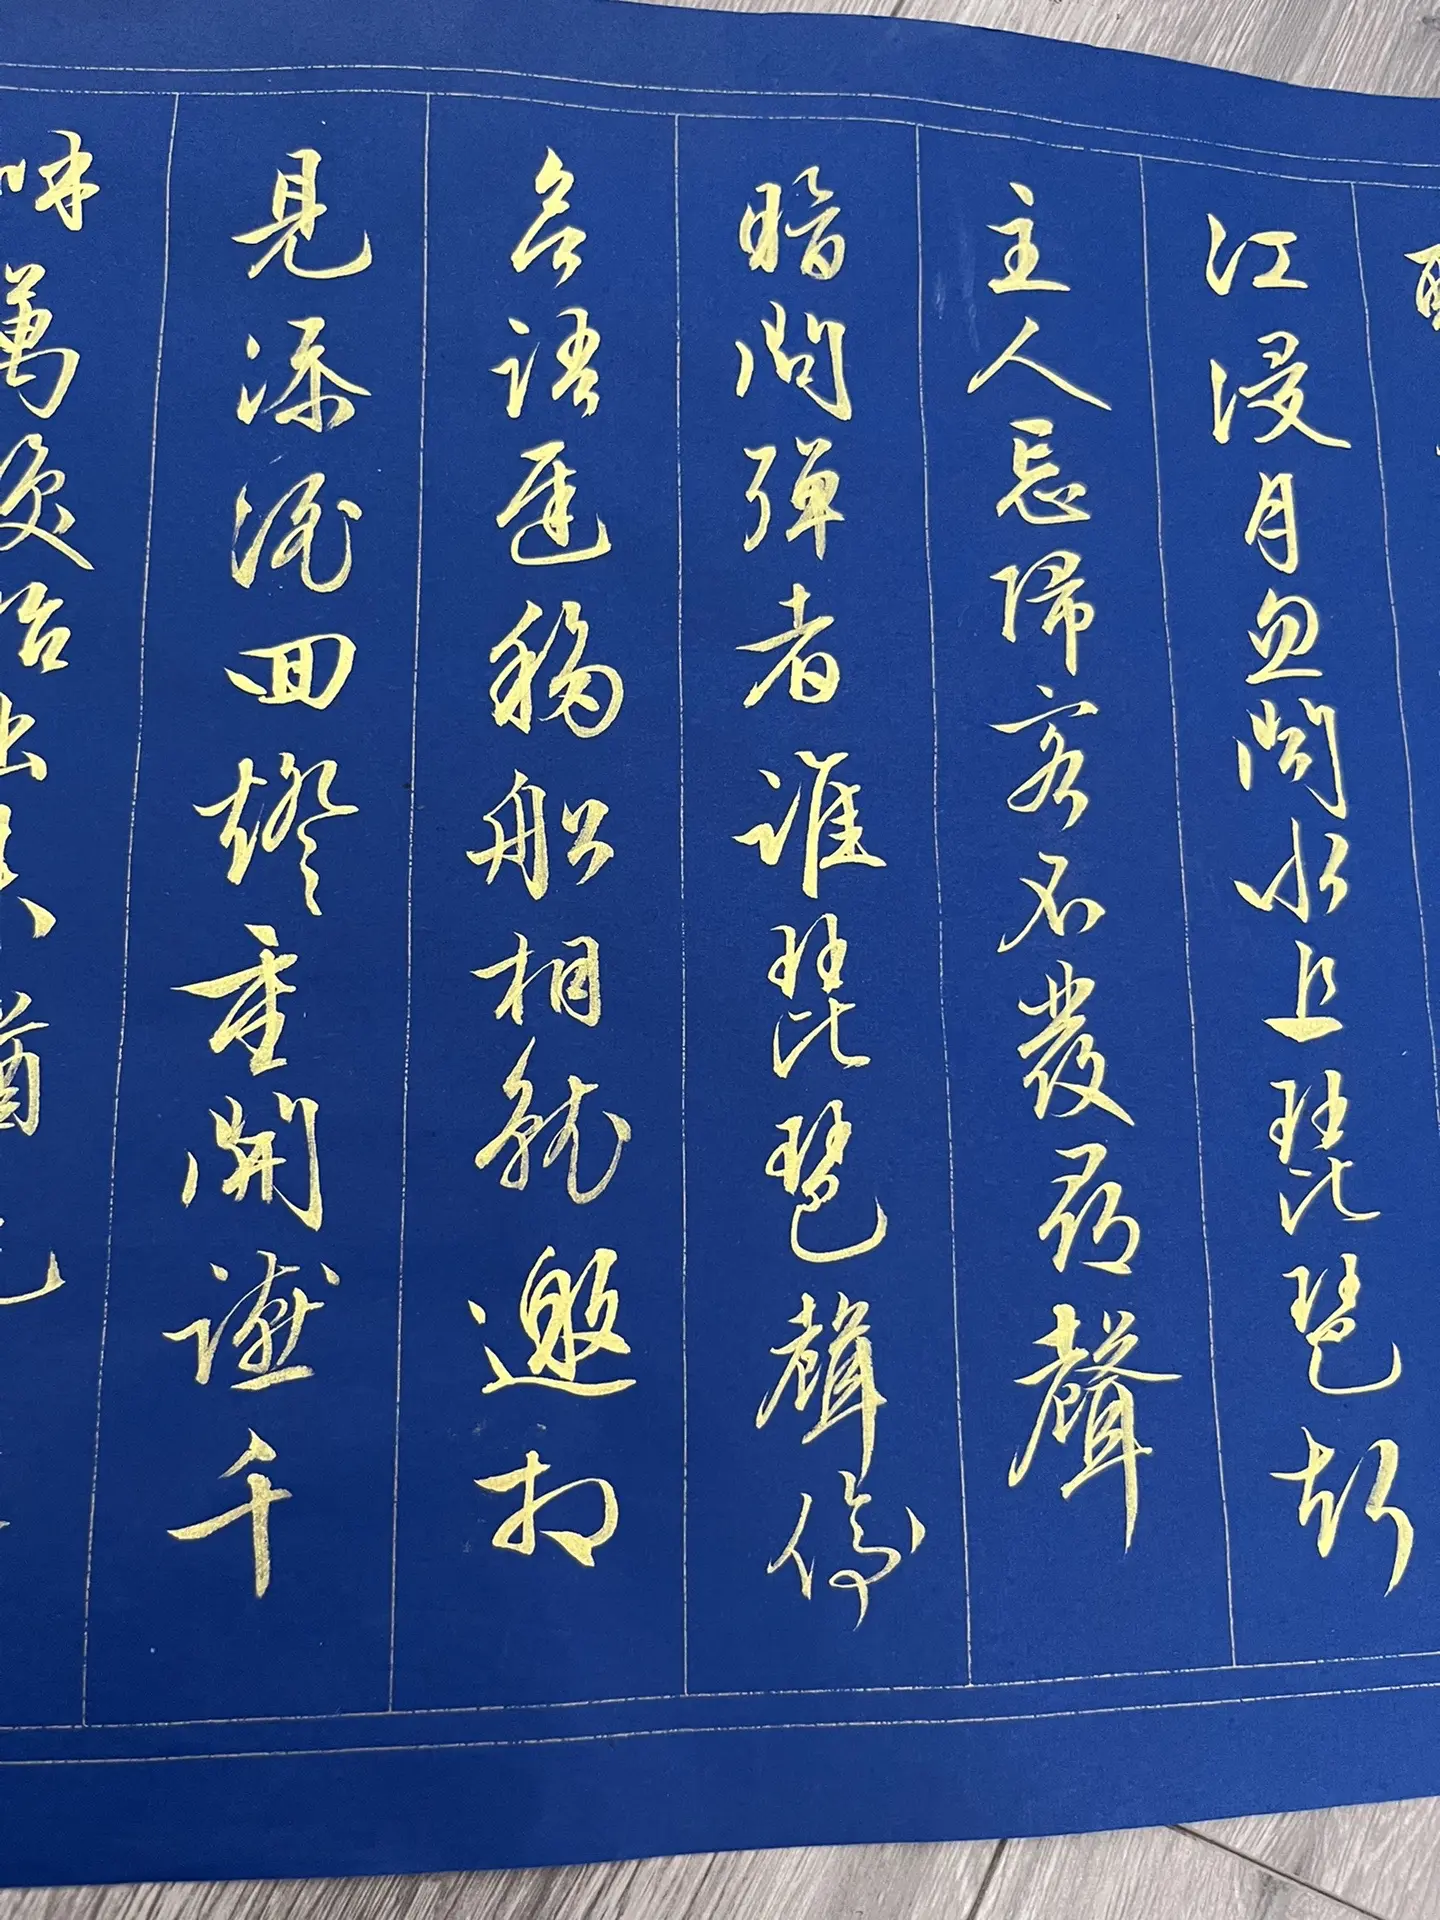 江浸月忽聞水上琵琶聲
主人忘歸客不發尋聲
暗問彈者誰琵琶聲停
欲語遲移船相就邀相
見添酒回燈重開讌千
呼萬喚始出來猶